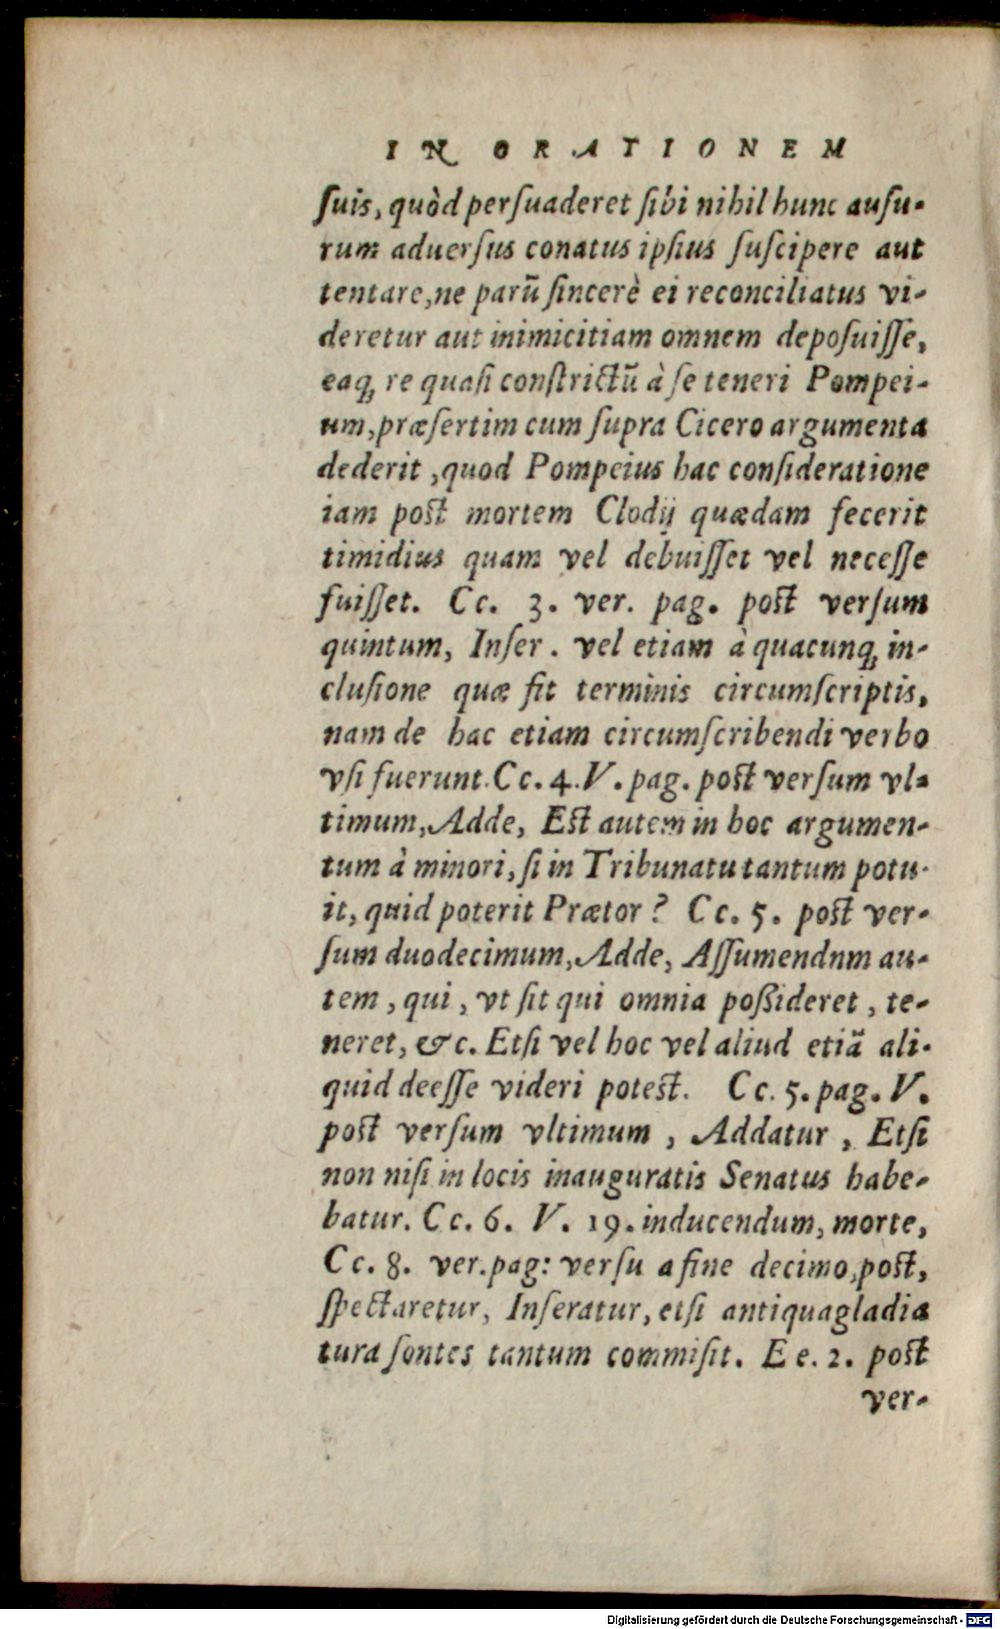 IN ORATIONEM
ſuis, quòd perſuaderet ſibi nihil hunc auſu-
rum aduerſus conatus ipſius ſuſcipere aut
tentare, ne parũ ſincerè ei reconciliatus vi-
deretur aut inimicitiam omnem depoſuiſſe,
eaq; re quaſi conſtrictũ à ſe teneri Pompei-
um, præſertim cum ſupra Cicero argumenta
dederit, quod Pompeius hac conſideratione
iam poſt mortem Clodij quædam fecerit
timidius quam vel debuiſſet vel neceſſe
fuiſſet. Cc. 3. ver. pag. poſt verſum
quintum, Inſer. vel etiam à quacunq; in-
cluſione quæ fit terminis circumſcriptis,
nam de hac etiam circumſcribendi verbo
vſi fuerunt. Cc. 4. V. pag. poſt verſum vl-
timum, Adde, Eſt autem in hoc argumen-
tum à minori, ſi in Tribunatu tantum potu-
it, quid poterit Prætor? Cc. 5. poſt ver-
ſum duodecimum, Adde, Aſſumendnm au-
tem, qui, vt ſit qui omnia poßideret, te-
neret, &c. Etſi vel hoc vel aliud etiã ali-
quid deeſſe videri poteſt. Cc. 5. pag. V.
poſt verſum vltimum, Addatur, Etſi
non niſi in locis inauguratis Senatus habe-
batur. Cc. 6. V. 19. inducendum, morte,
Cc. 8. ver. pag: verſu a fine decimo, poſt,
ſpectaretur, Inſeratur, etſi antiqua gladia
tura ſontes tantum commiſit. Ee. 2. poſt
ver-
Digitalisierung gefördert durch die Deutsche Forschungsgemeinschaft - DFG